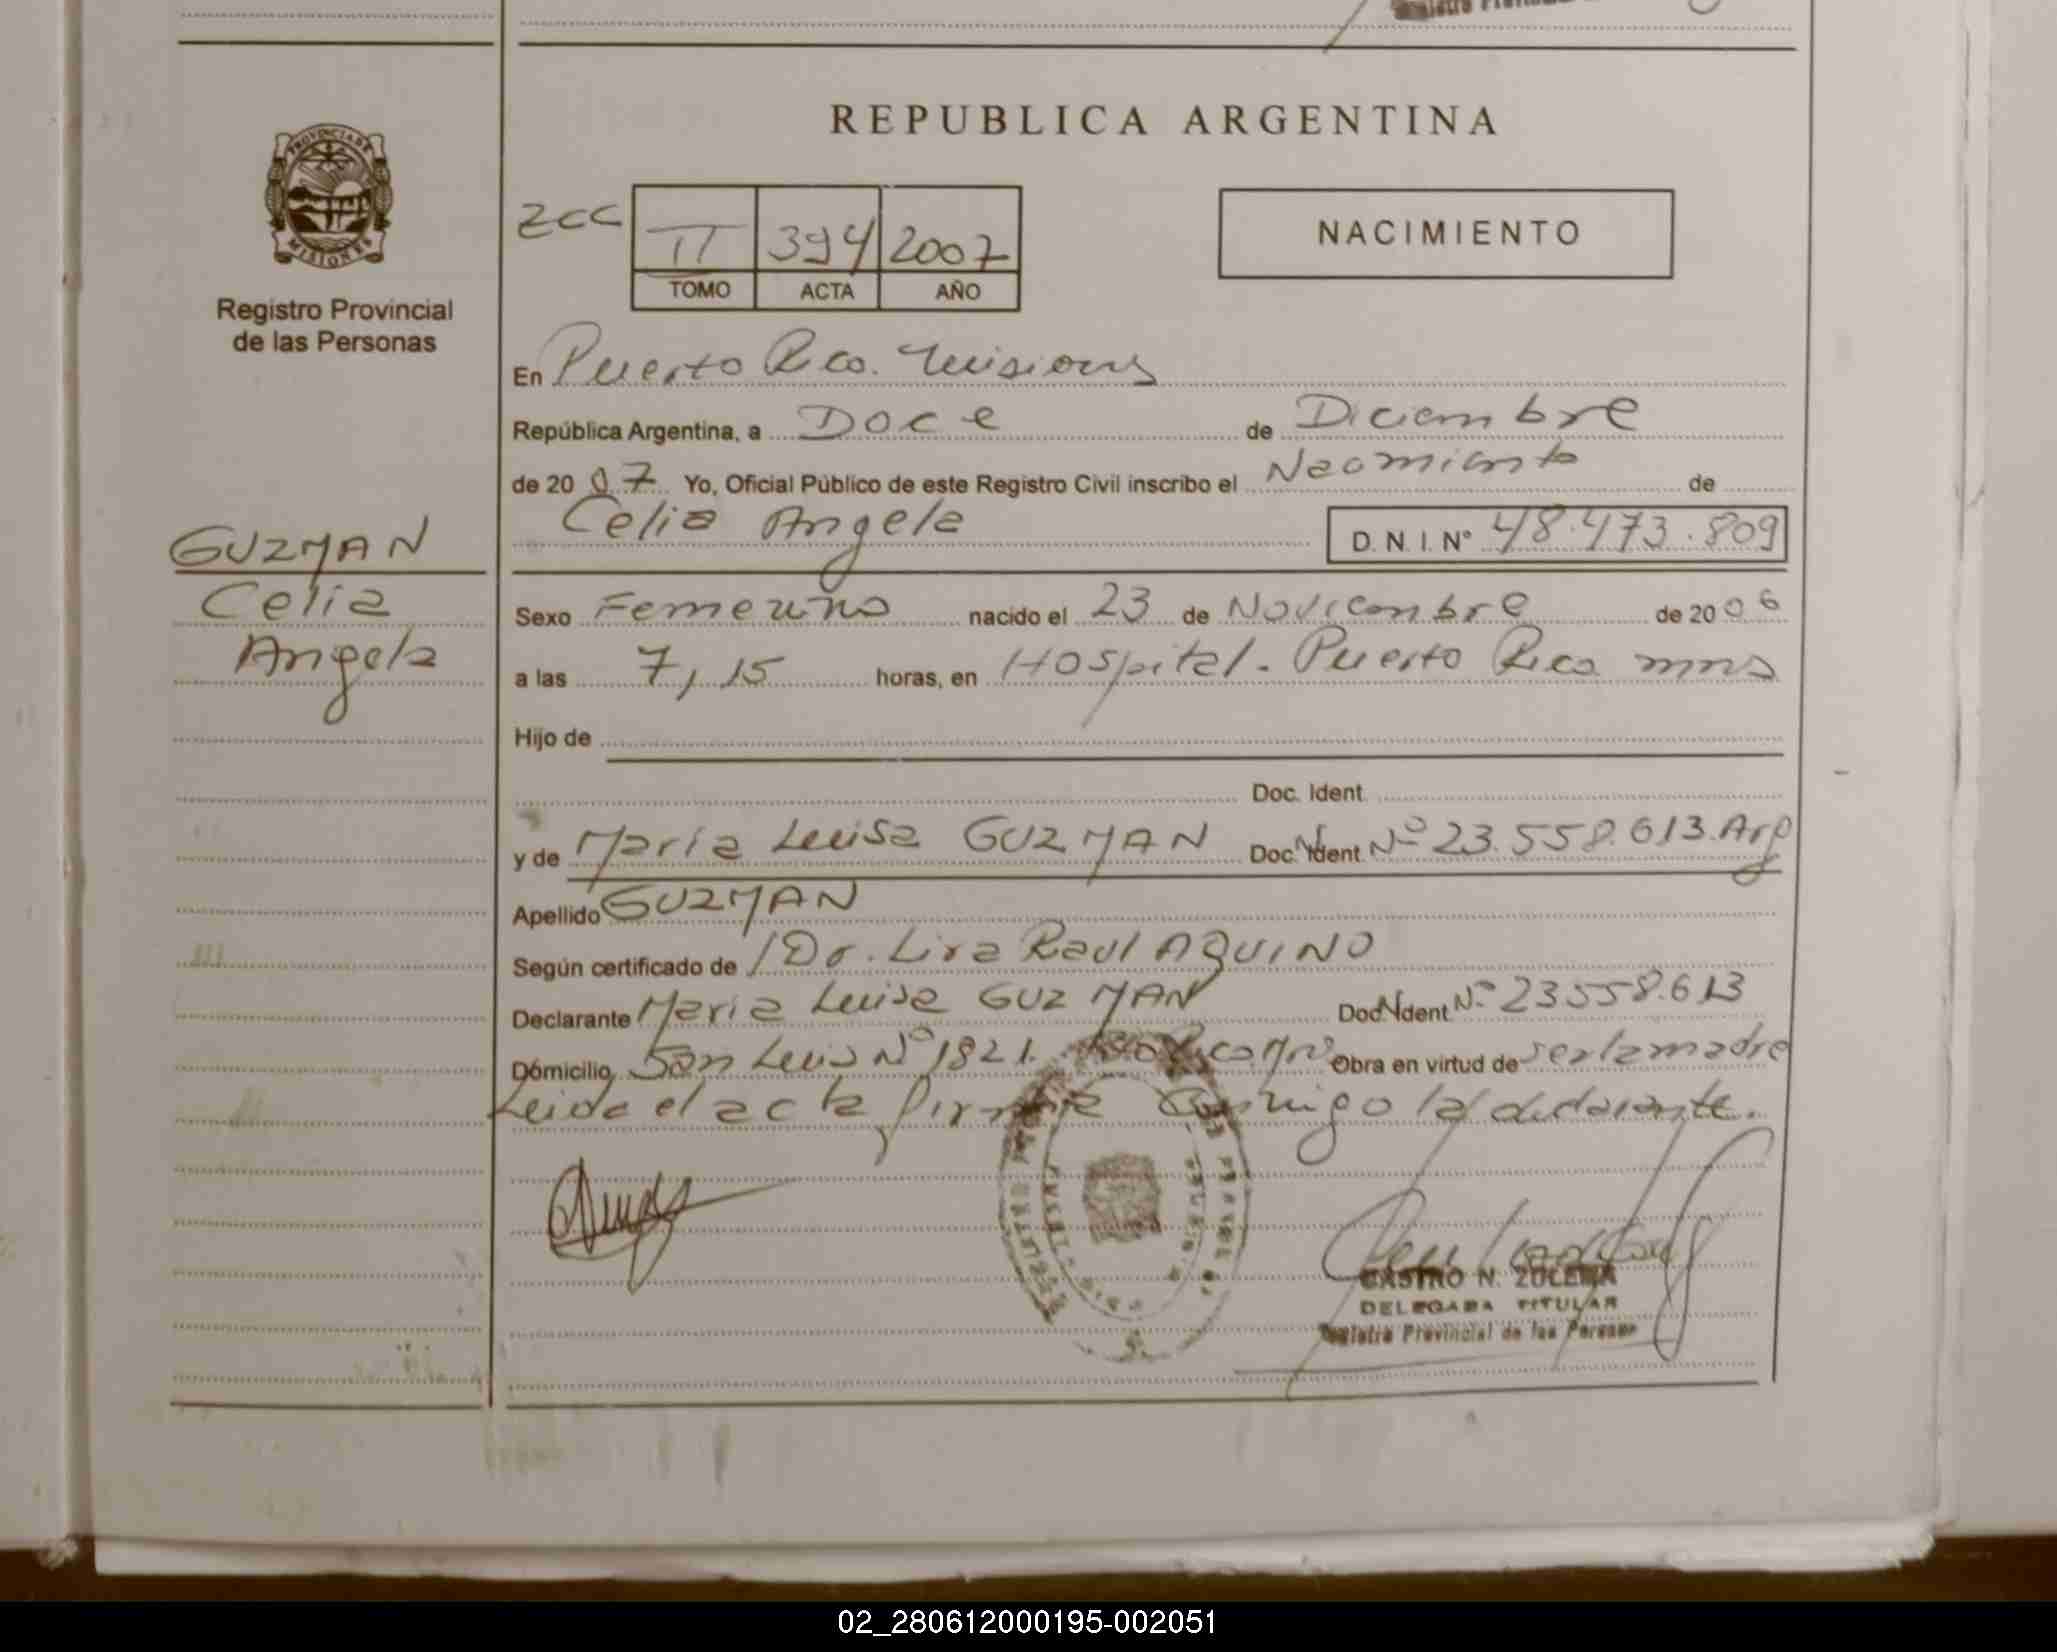 REPUBLICA ARGENTINA
PROVINCIA DE
MISIONES
Registro Provincial
de las Personas
GUZMAN
Celia
Angela
ZCC
II 394 2007
TOMO ACTA AÑO
NACIMIENTO
En Puerto Rico. Misiones
República Argentina, a Doce de Diciembre
de 2007 Yo, Oficial Público de este Registro Civil inscribo el Nacimiento de
Celia Angela D. N. I. Nº 48.473.809
Sexo Femenino nacido el 23 de Noviembre de 2006
a las 7,15 horas, en Hospital - Puerto Rico mns
Hijo de
Doc. Ident.
y de Maria Luisa GUZMAN Doc. Ident. Nº 23.558.613. Arg
Apellido GUZMAN
Según certificado de Dr. Lira Raul AQUINO
Declarante Maria Luisa GUZMAN Doc. Ident. Nº 23558.613
Domicilio San Luis Nº 1821. Obra en virtud de ser la madre
Leida el acta firma Conmigo la declarante.
CASTRO N. ZULEMA
DELEGADA TITULAR
Registro Provincial de las Personas
02_280612000195-002051